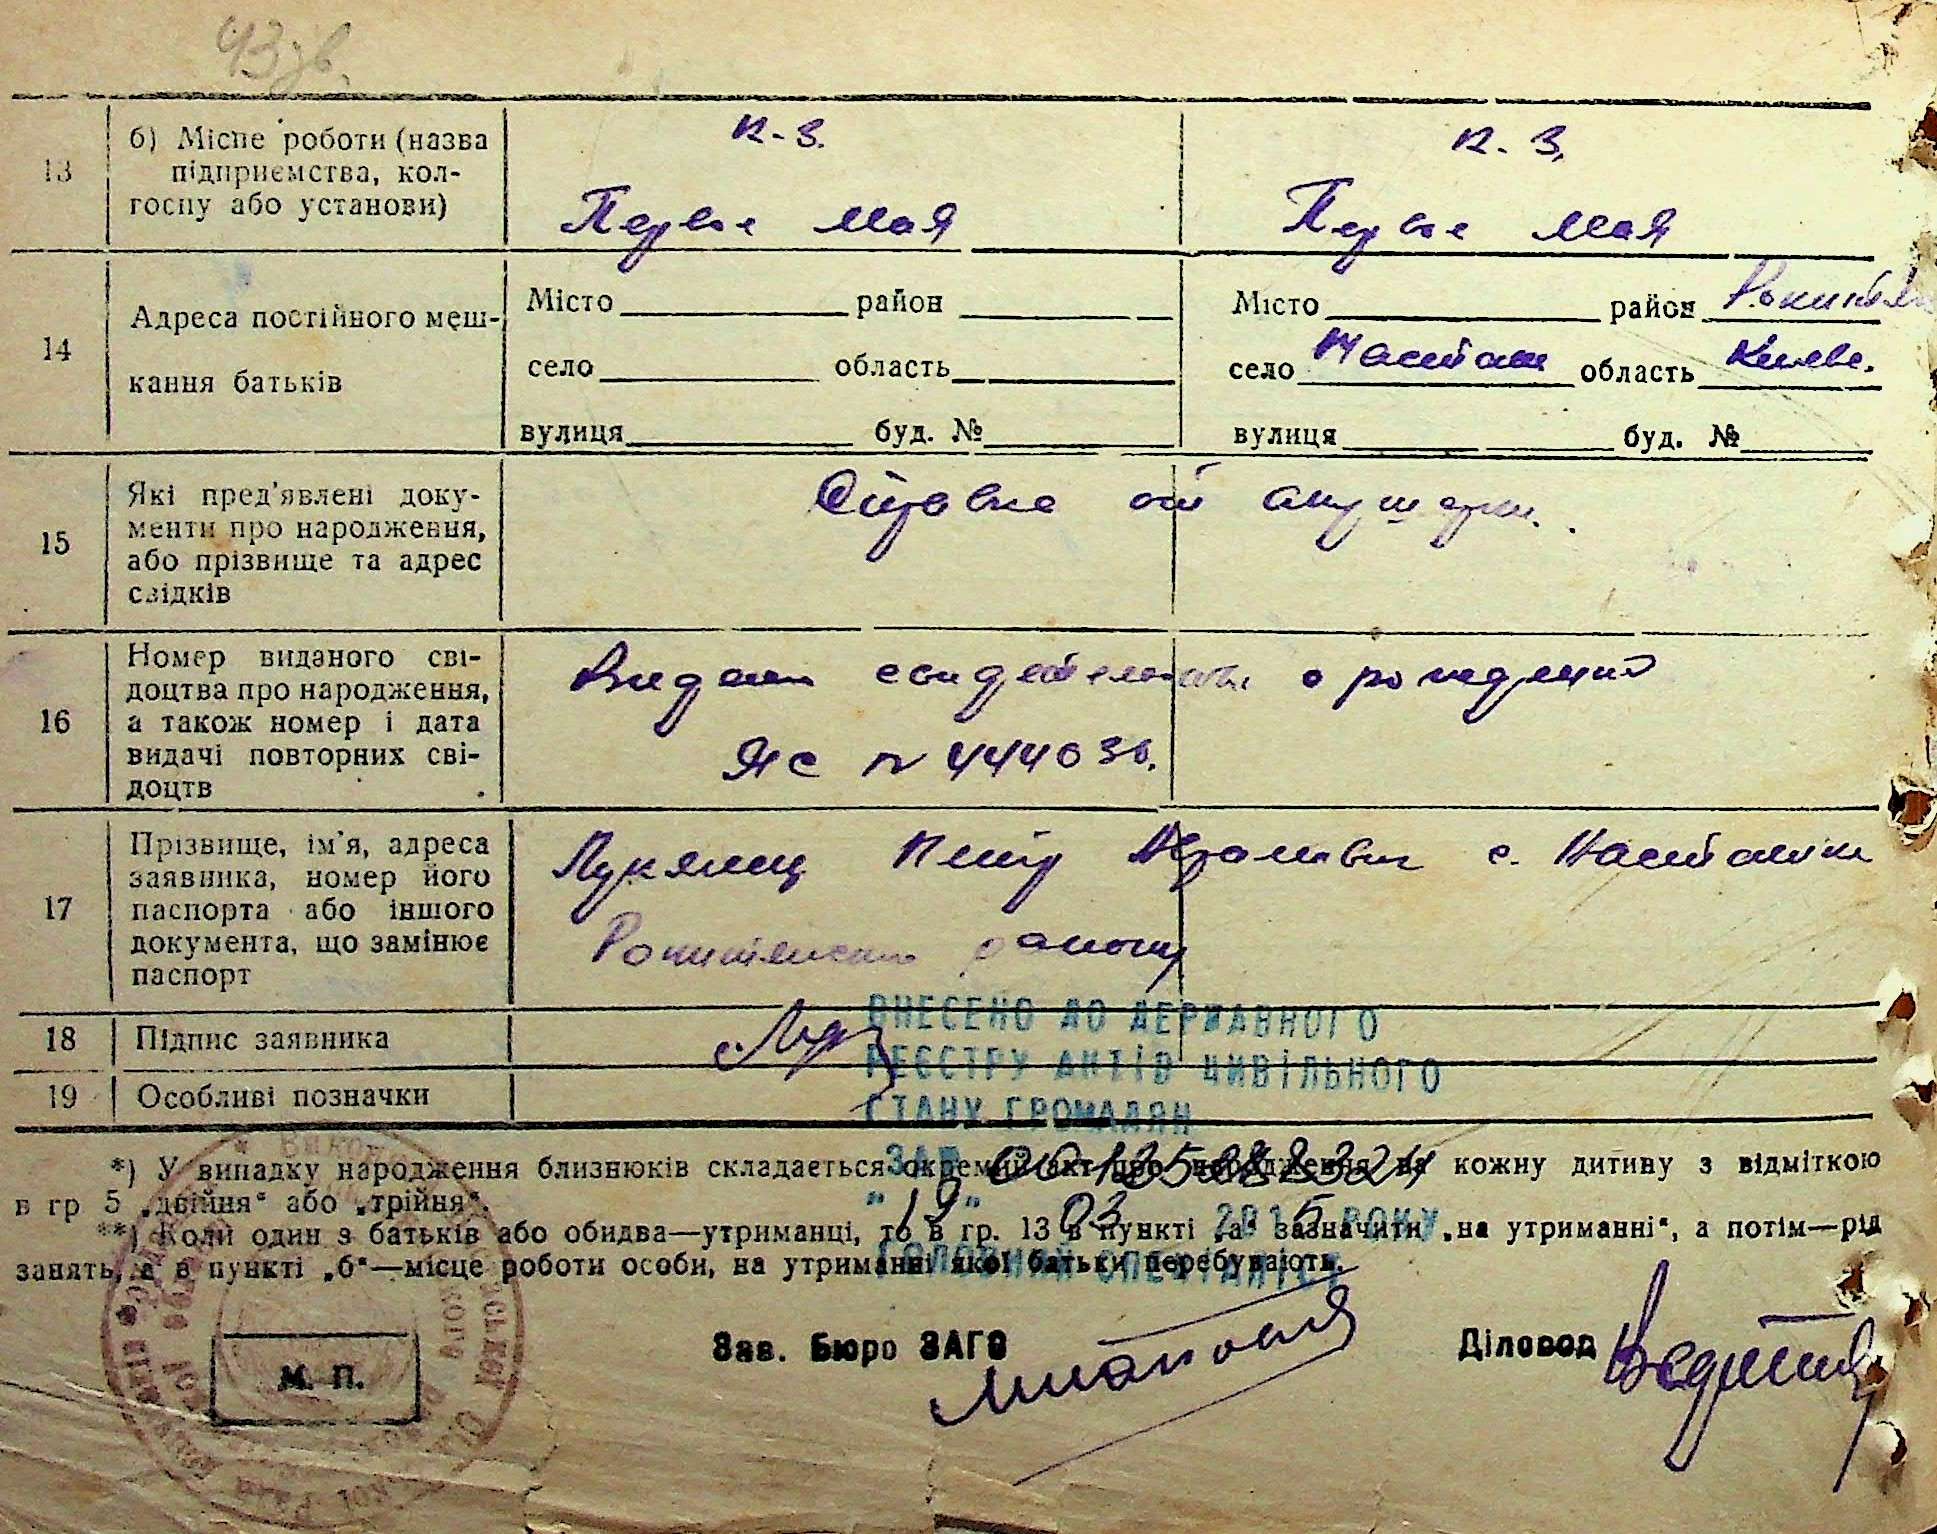 43 зв.
13
б) Місце роботи (назва
підприємства, кол-
госпу або установи)
к-з.
Первое Мая
к. з.
Первое Мая
14
Адреса постійного меш-
кання батьків
Місто район
село область
вулиця буд. №
Місто район
село Насташк область Киевс.
вулиця буд. №
15
Які пред'явлені доку-
менти про народження,
або прізвище та адрес
свідків
Справка от акушерки.
16
Номер виданого сві-
доцтва про народження,
а також номер і дата
видачі повторних сві-
доцтв
Видан свидетельств о рождений
ЯС № 444036.
17
Прізвище, ім'я, адреса
заявника, номер його
паспорта або іншого
документа, що замінює
паспорт
Лукянец с. Насташки
Рокитянского району
18
Підпис заявника
19
Особливі позначки
ВНЕСЕНО ДО ДЕРЖАВНОГО
РЕЄСТРУ АКТІВ ЦИВІЛЬНОГО
СТАНУ ГРОМАДЯН
"19" 03 2015 РОКУ
ГОЛОВНИЙ СПЕЦІАЛІСТ
*) У випадку народження близнюків складається окремий акт про народження на кожну дитину з відміткою
в гр 5 „двійня“ або „трійня“.
**) Коли один з батьків або обидва—утриманці, то в гр. 13 в пункті „а“ зазначити „на утриманні“, а потім—рід
занять, а в пункті „б“—місце роботи особи, на утриманні якої батьки перебувають.
М. П.
Зав. Бюро ЗАГС
Діловод